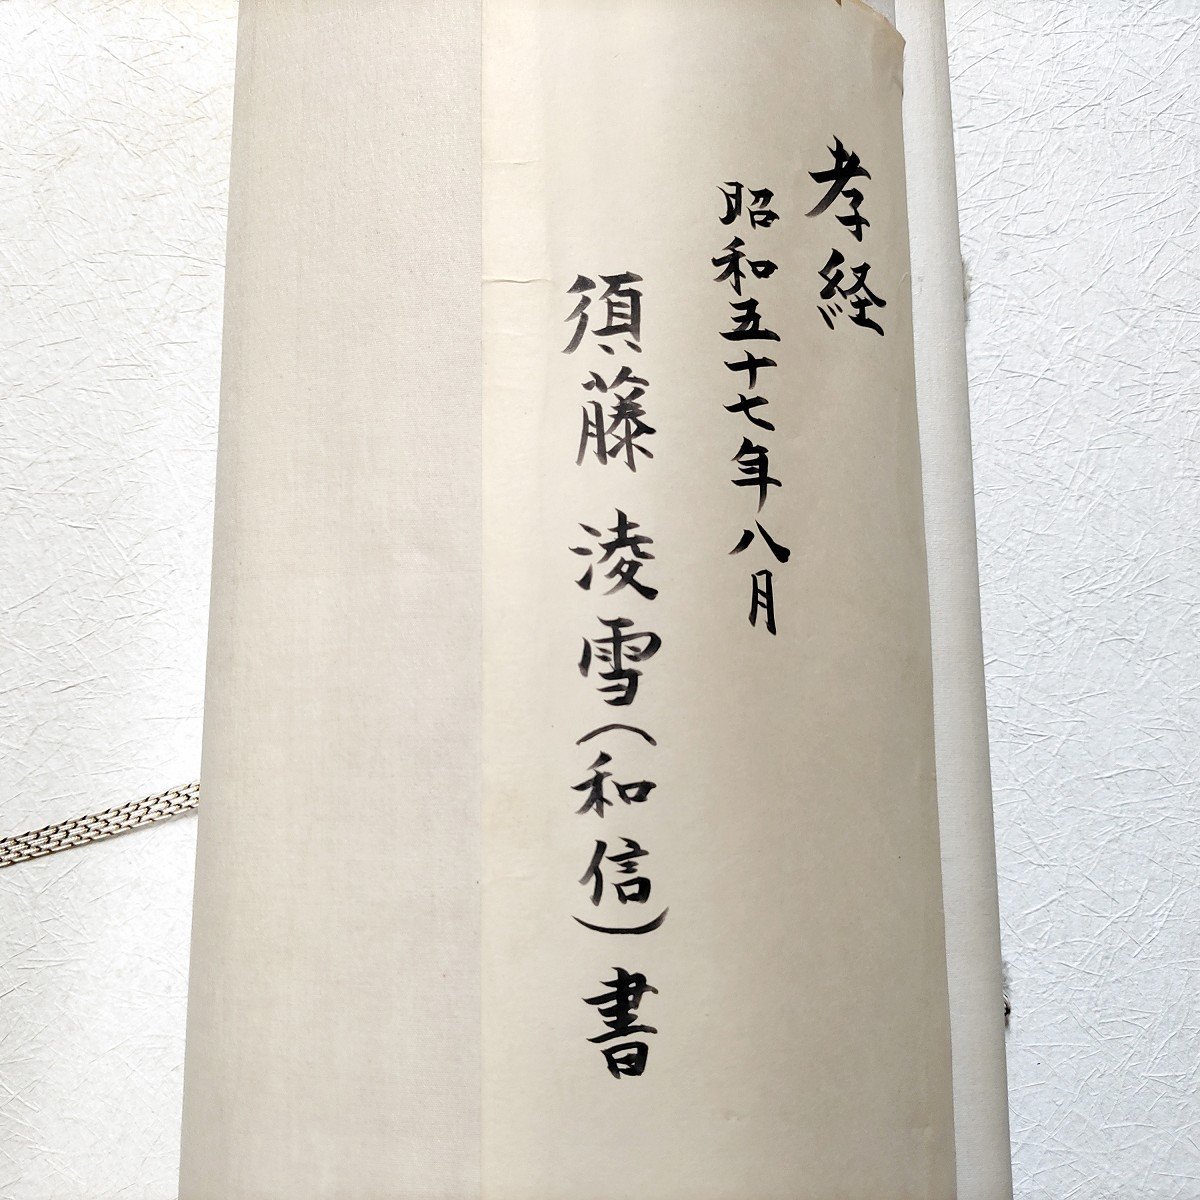 孝経
昭和五十七年八月
須藤 淩雪(和信)書